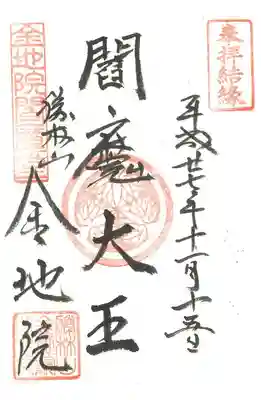 奉拝結縁
平成廿七年十一月十五日
閻魔大王
勝林山
金地院